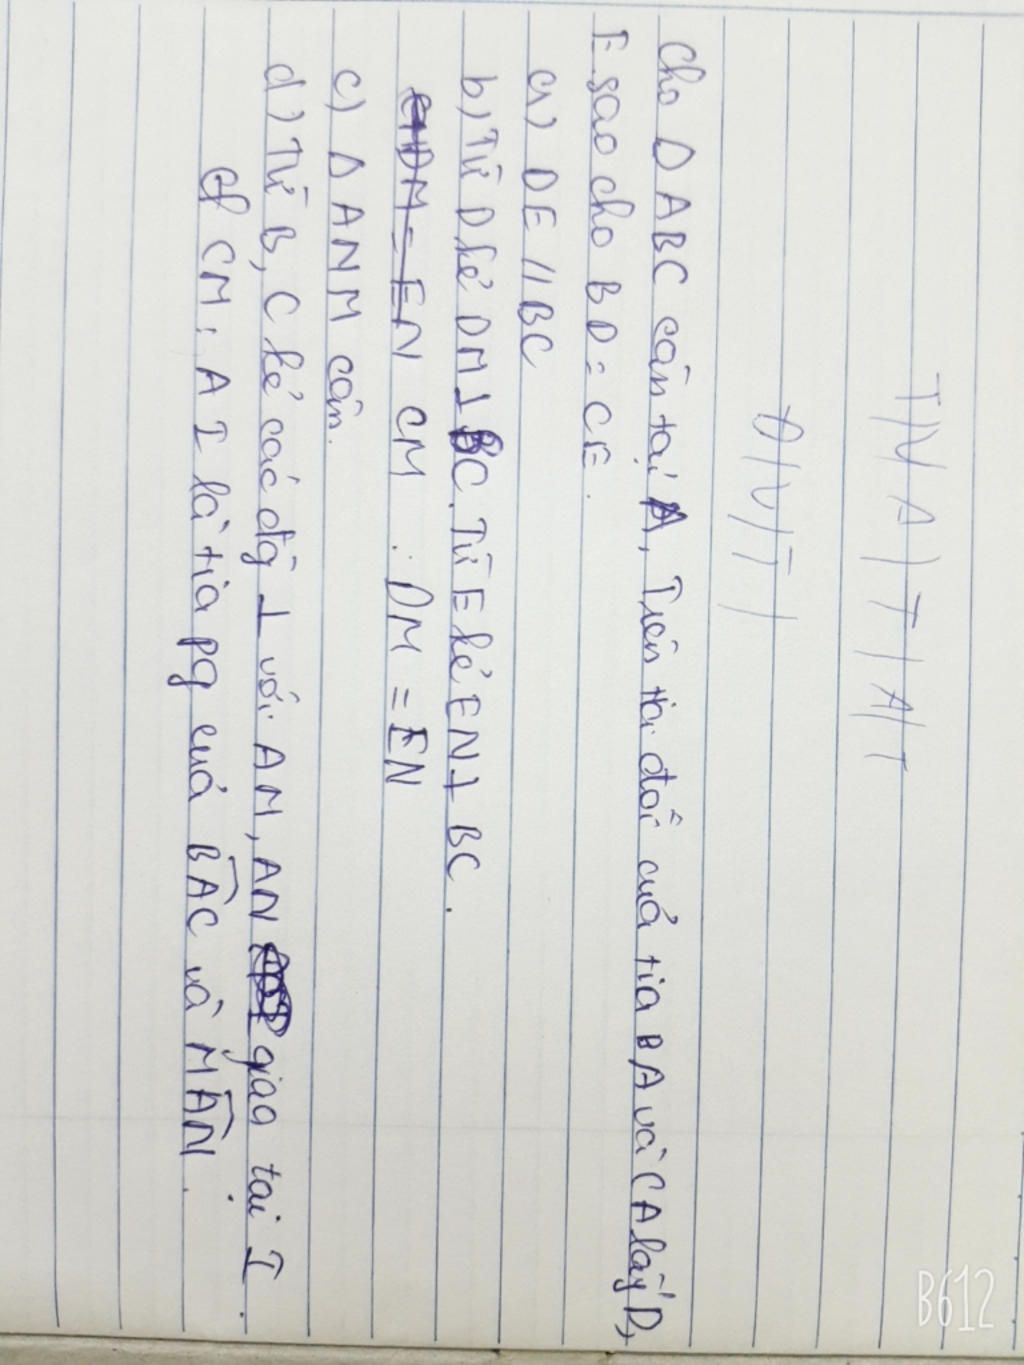 T/V/A/T/A/T
A/V/T/
Cho Δ ABC cân tại A, Trên tia đối của tia BA và CA lấy D,
E sao cho BD = CE.
a) DE // BC
b) Từ D kẻ DM ⊥ BC. Từ E kẻ EN ⊥ BC.
DM = EN CM : DM = EN
c) Δ ANM cân.
d) Từ B, C kẻ các đg ⊥ với AM, AN giao tại I.
CM: AI là tia pg của BAC và MAN.
B612